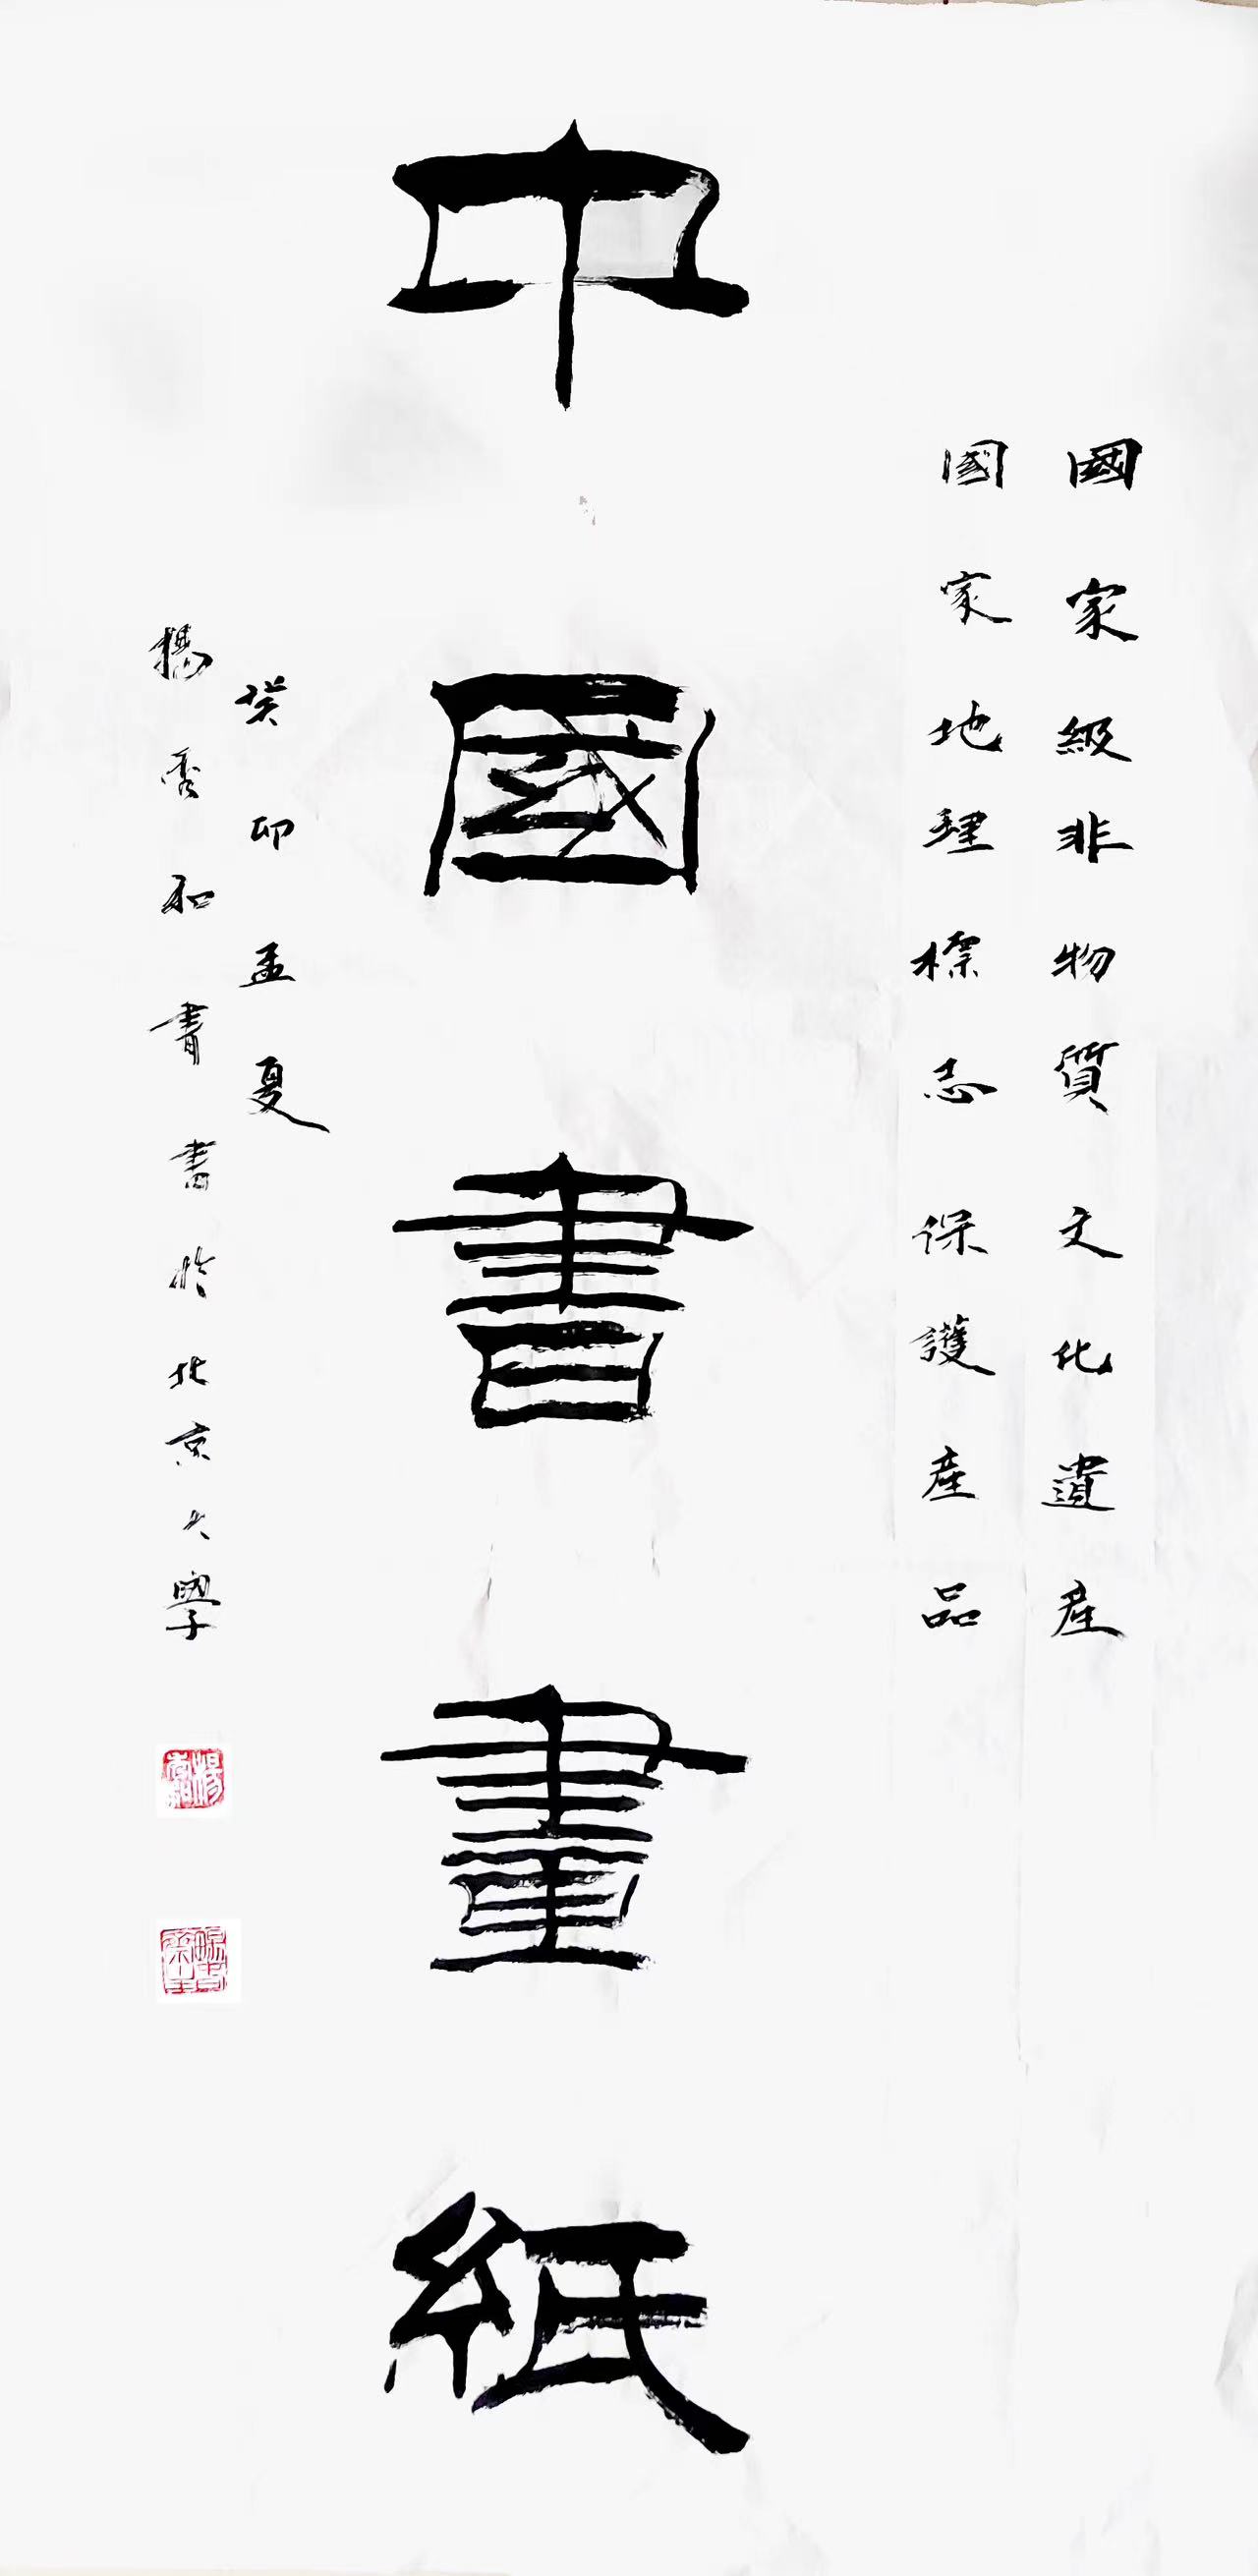 國家級非物質文化遺產
國家地理標志保護產品
中國書畫紙
癸卯孟夏
楊秀和書書於北京大學